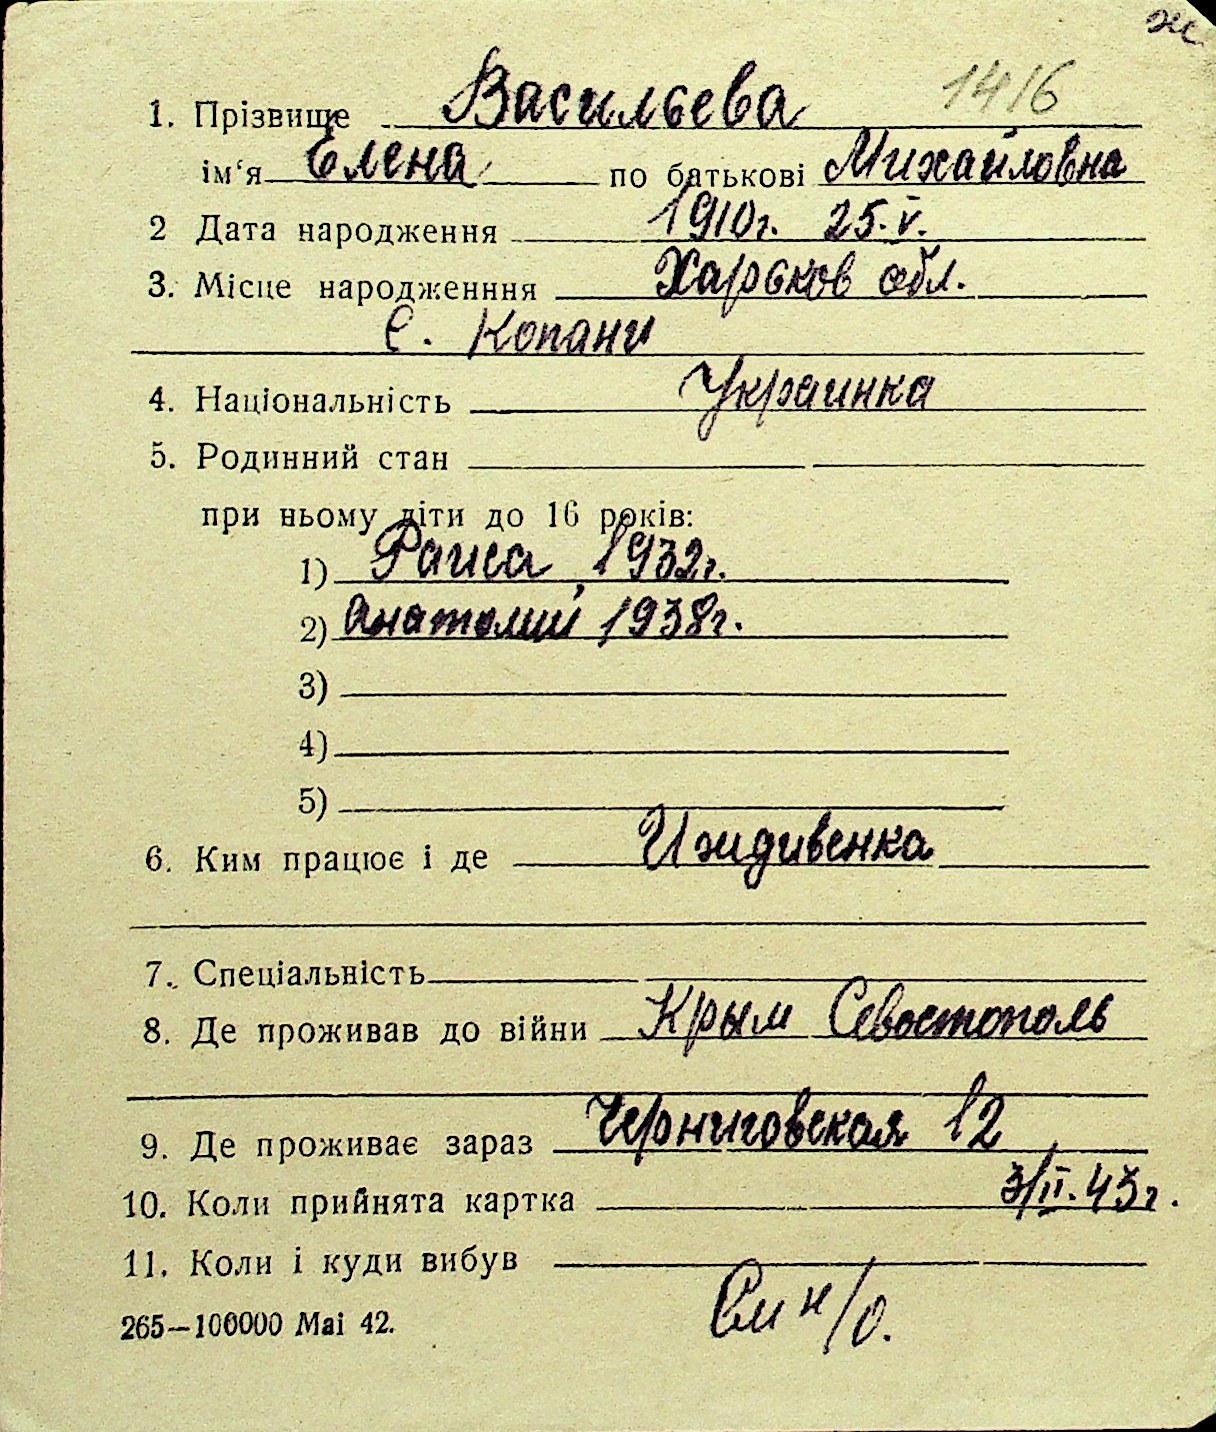 ж
1416
1. Прізвище Васильева
ім'я Елена по батькові Михайловна
2 Дата народження 1910г. 25.V.
3. Місце народженння Харьков обл.
С. Копани
4. Національність Украинка
5. Родинний стан
при ньому діти до 16 років:
1) Раиса 1932г.
2) Анатолий 1938г.
3)
4)
5)
6. Ким працює і де Иждивенка
7. Спеціальність
8. Де проживав до війни Крым Севостополь
9. Де проживає зараз Черниговская 12
10. Коли прийнята картка 3/II.43г.
11. Коли і куди вибув
См н/о.
265—100000 Mai 42.